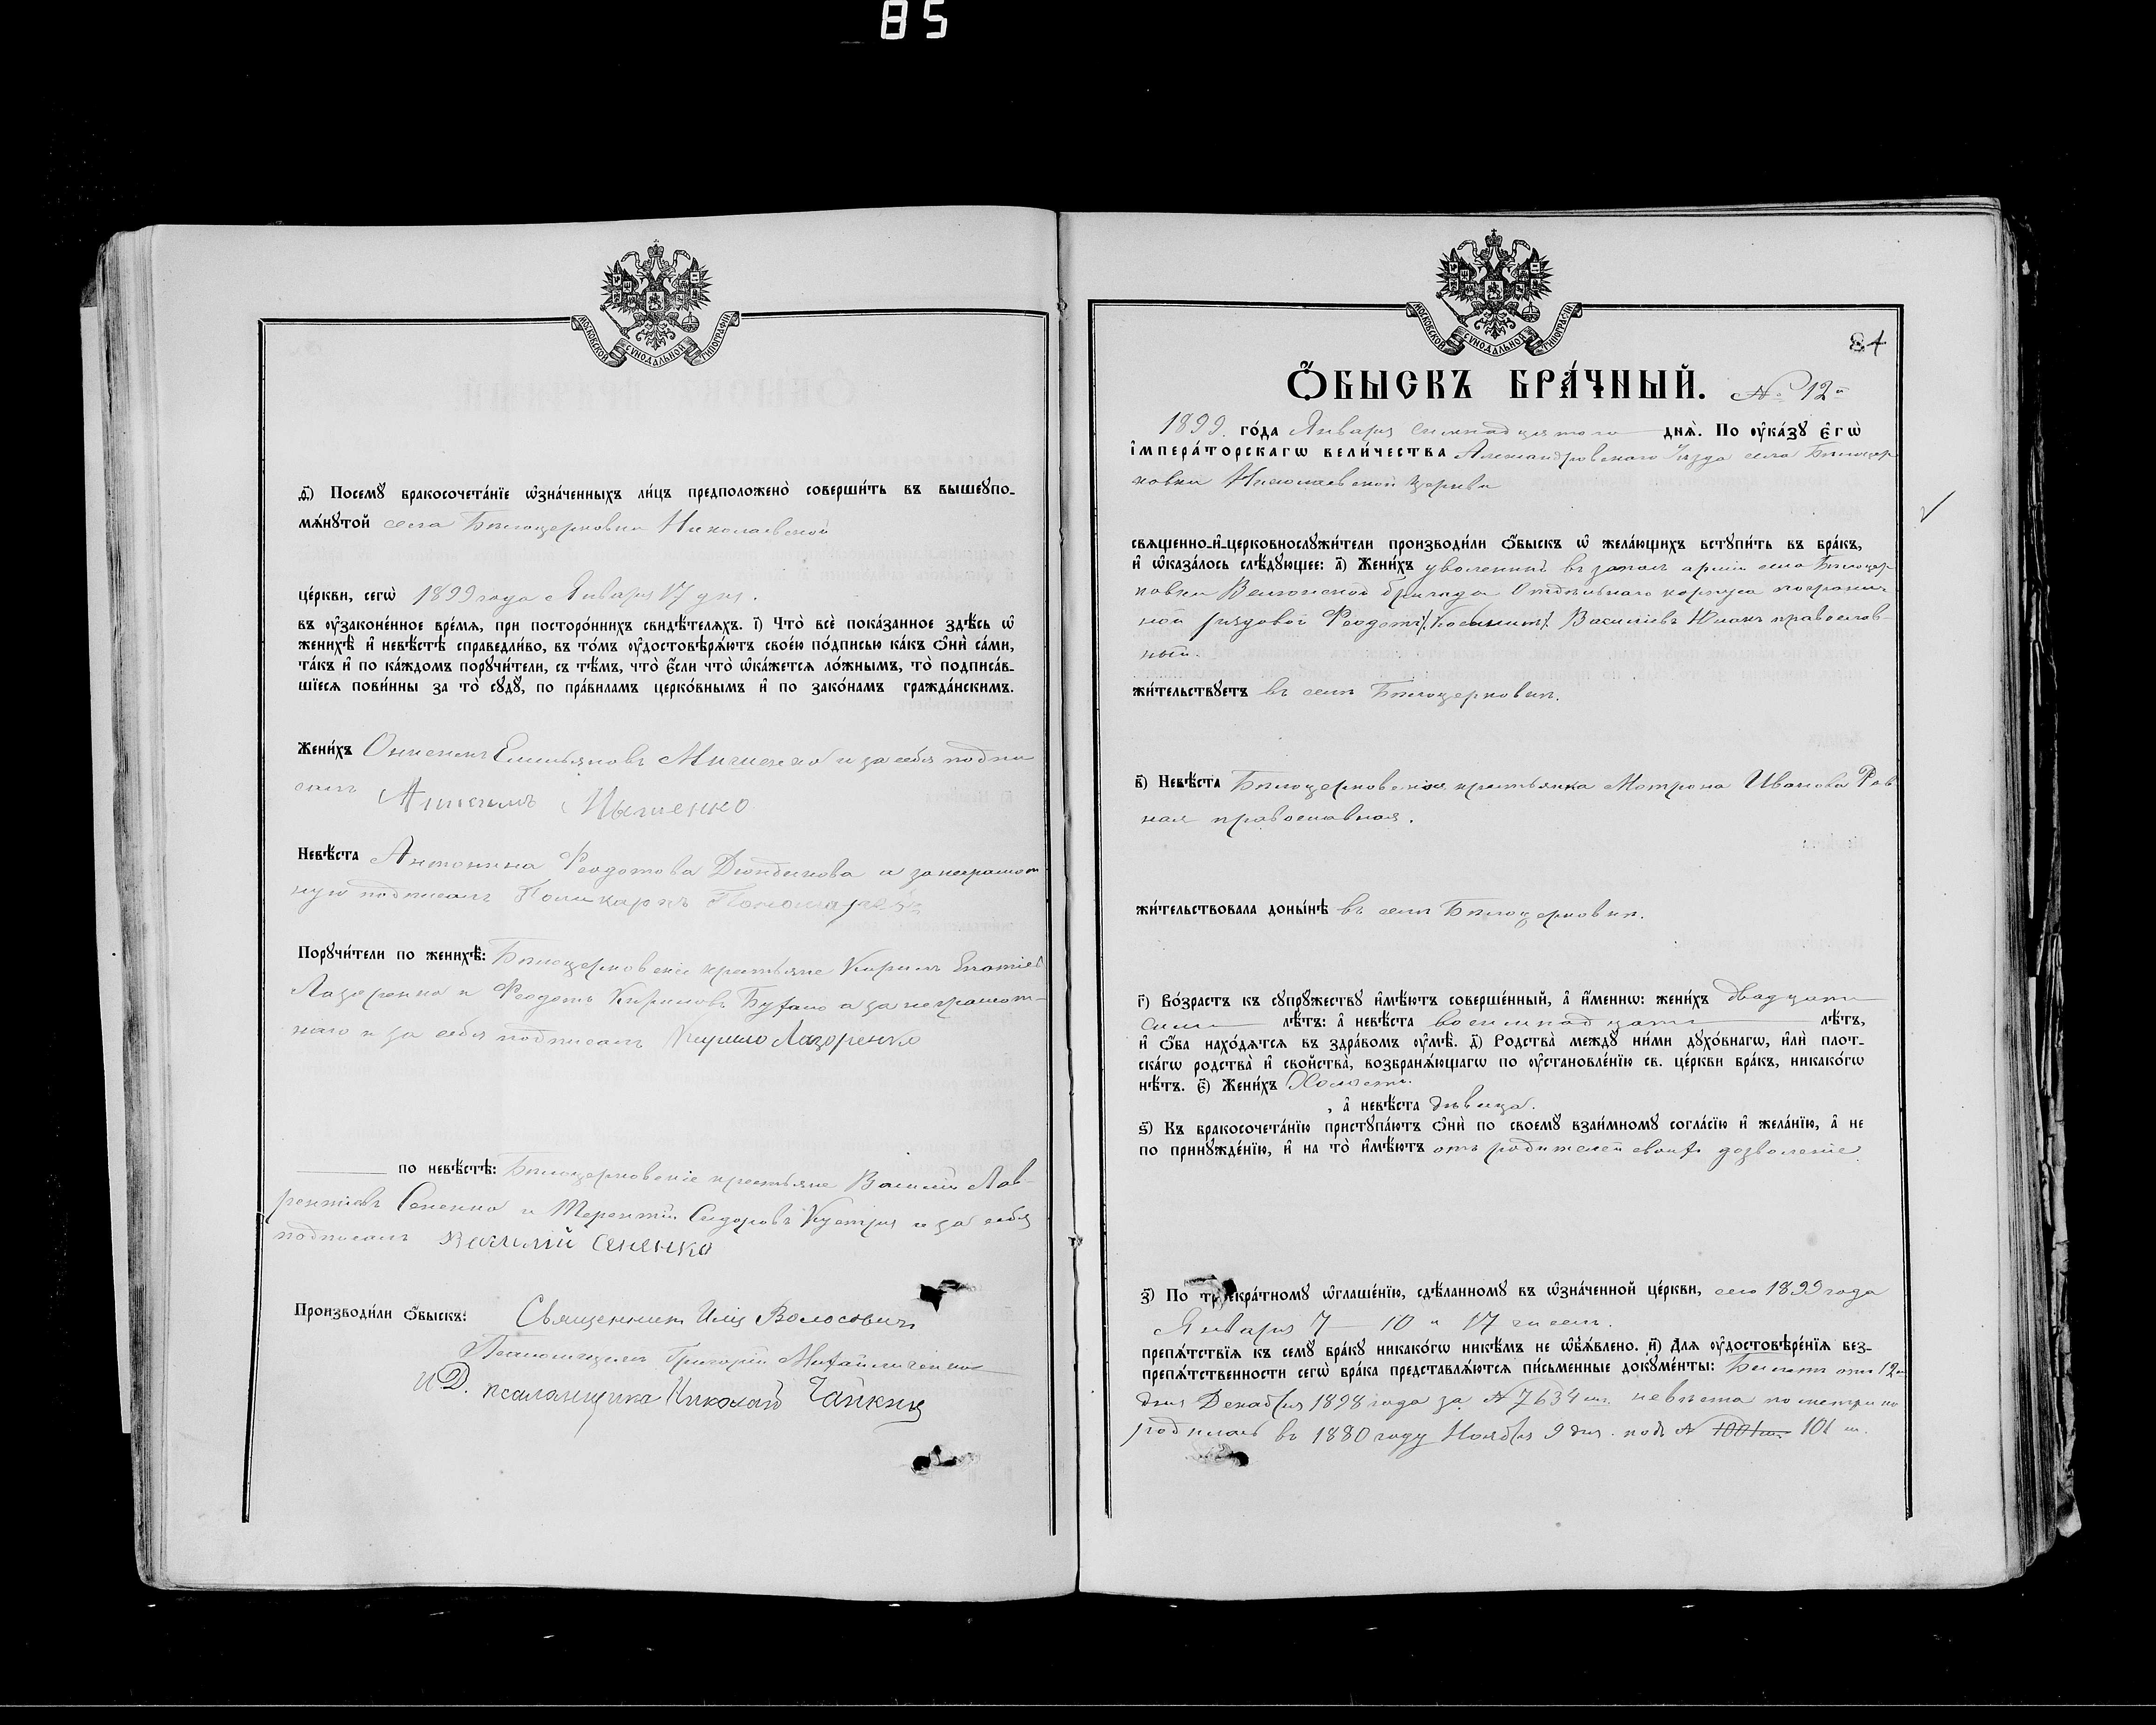 85
МОСКОВСКОЙ СѴНОДАЛЬНОЙ ТИПОГРАФІИ
ѳ҃) Посемꙋ бракосочета́нїе ѡ҆зна́ченныхъ ли́цъ предположено̀ соверши́ть въ вышеупо-
мѧ́нꙋтой села Бѣлоцерковки Николаевской
це́ркви, сегѡ̀ 1899 года Января 17 дня.
въ оу҆законе́нное вре́мѧ, при посторо́ннихъ свидѣ́телѧхъ. і҃) Что̀ всѐ пока́занное здѣ́сь ѡ҆
женихѣ̀ и҆ невѣ́стѣ справедли́во, въ то́мъ оу҆достовѣрѧ́ютъ свое́ю по́дписью ка́къ ѻ҆нѝ са́ми,
та́къ и҆ по ка́ждомъ порꙋчи́тели, съ тѣ́мъ, что̀ є҆́сли что̀ ѡ҆ка́жетсѧ ло́жнымъ, то̀ подписа́в-
шїесѧ пови́нны за то̀ сꙋдꙋ̀, по пра́виламъ церко́внымъ и҆ по зако́намъ гражда́нскимъ.
Жени́хъ Онисимъ Емельяновъ и за себя подпи
салъ
Невѣ́ста Антонина Феодотова Дюндикова а за неграмот
ную подписалъ Поликарпъ
Порꙋчи́тели по женихѣ̀: Бѣлоцерковскіе крестьяне Кирилъ
Лазоренко и Феодотъ Кириловъ а за неграмот-
наго и за себя подписалъ Кирило Лазоренко
по невѣ́стѣ: Бѣлоцерковскіе крестьяне Василій Лав-
рентіевъ Сененко и Терентій Сидоровъ и за себя
подписалъ Василій Сененко
Производи́ли ѻ҆́быскъ: Священникъ Илія Волосовичъ
Псаломщикъ Григорій Михайличенко
И.Д. псаломщика Николай Чайкинъ
МОСКОВСКОЙ СѴНОДАЛЬНОЙ ТИПОГРАФІИ
84
Ѻ҆́БЫСКЪ БРА́ЧНЫЙ. № 12й
1899 го́да Января семнадцятого днѧ̀. По оу҆ка́зꙋ є҆гѡ̀
і҆мпера́торскагѡ вели́чества Александровскаго Уѣзда села Бѣлоцер
ковки Николаевской Церкви
свѧщенно-и҆-церковнослꙋжи́тели производи́ли ѻ҆́быскъ ѡ҆ жела́ющихъ встꙋпи́ть въ бра́къ,
и҆ ѡ҆каза́лось слѣ́дꙋющее: а҃) Жени́хъ уволенный въ запасъ арміи села Бѣлоцер
ковки бригады Отдѣльнаго корпуса погранич-
ной рядовой Феодотъ Василіевъ православ-
ный.
жи́тельствꙋетъ въ селѣ Бѣлоцерковкѣ.
в҃) Невѣ́ста Бѣлоцерковская крестьянка Матрона Иванова Рев
ная православная.
жи́тельствовала доны́нѣ въ селѣ Бѣлоцерковкѣ.
г҃) Во́зрастъ къ сꙋпрꙋ́жествꙋ и҆мѣ́ютъ соверше́нный, а҆ и҆́меннѡ: жени́хъ двадцати
семи лѣ́тъ: а҆ невѣ́ста восемнадцати лѣ́тъ,
и҆ ѻ҆́ба нахо́дѧтсѧ въ здра́вомъ оу҆мѣ̀. д҃) Родства̀ междꙋ̀ ни́ми дꙋхо́внагѡ, и҆лѝ плот-
ска́гѡ родства̀ и҆ сво́йства̀, возбранѧ́ющагѡ по оу҆становле́нїю св. це́ркви бра́къ, никако́гѡ
нѣ́тъ. є҃) Жени́хъ Холостъ.
, а҆ невѣ́ста дѣвица.
ѕ҃) Къ бракосочета́нїю пристꙋпа́ютъ ѻ҆нѝ по своемꙋ̀ взаи́мномꙋ согла́сїю и҆ жела́нїю, а҆ не
по принꙋжде́нїю, и҆ на то̀ и҆мѣ́ютъ отъ родителей своихъ дозволеніе
з҃) По троекра́тномꙋ ѡ҆глаше́нїю, сдѣ́ланномꙋ въ ѡ҆зна́ченной це́ркви, сего 1899 года
Января 7 10 и 17 чиселъ.
препѧ́тствїѧ къ семꙋ̀ бра́кꙋ никако́гѡ никѣ́мъ не ѡ҆б̾ѧ́влено. и҃) Длѧ оу҆достовѣре́нїѧ без-
препѧ́тственности сегѡ̀ бра́ка представлѧ́ютсѧ пи́сьменные докꙋме́нты: Билетъ отъ 12го
дня Декабря 1898 года за № 7634 невѣста по метрикѣ
родилась въ 1880 году Ноября 9 дня подъ № 101